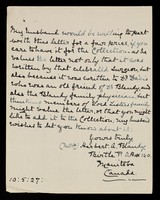 My husband would be willing to part
with this letter for a fair price if you
care to have it for the Collection as he
values the letter not only that it was
written by that celebrated surgeon but
also because it was written to Dr
who was an old friend of Dr Blandy and
also the Blandy family.
members of Lord Lister's family
might value the letter, or that you might
like to add it to the Collection. My husband
wishes to let you know about it.
Yours truly
Herbert A. Blandy
Manitoba
Canada
10:5:27.